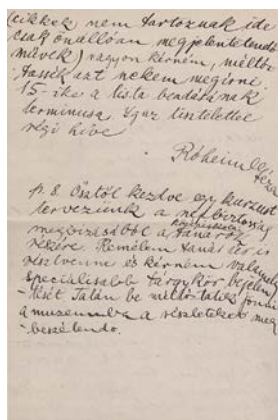 (cikkek nem tartoznak ide
csak önállóan megjelentetendő
művek) nagyon kérném, méltóz-
tassék azt nekem megírni.
15-ike a lista beadásának
terminusa. Igaz tisztelettel
régi híve
Róheim Géza
p. s. Ősztől kezdve egy kurzust
tervezünk a népbiztosság
megbízásából a
tanárok
részére. Remélem tanár úr is
résztvenne és kérném valamely
speciálisabb tárgykör bejelen-
tését. Talán be méltóztatik
a muzeumba a részleteket meg-
beszélendő.